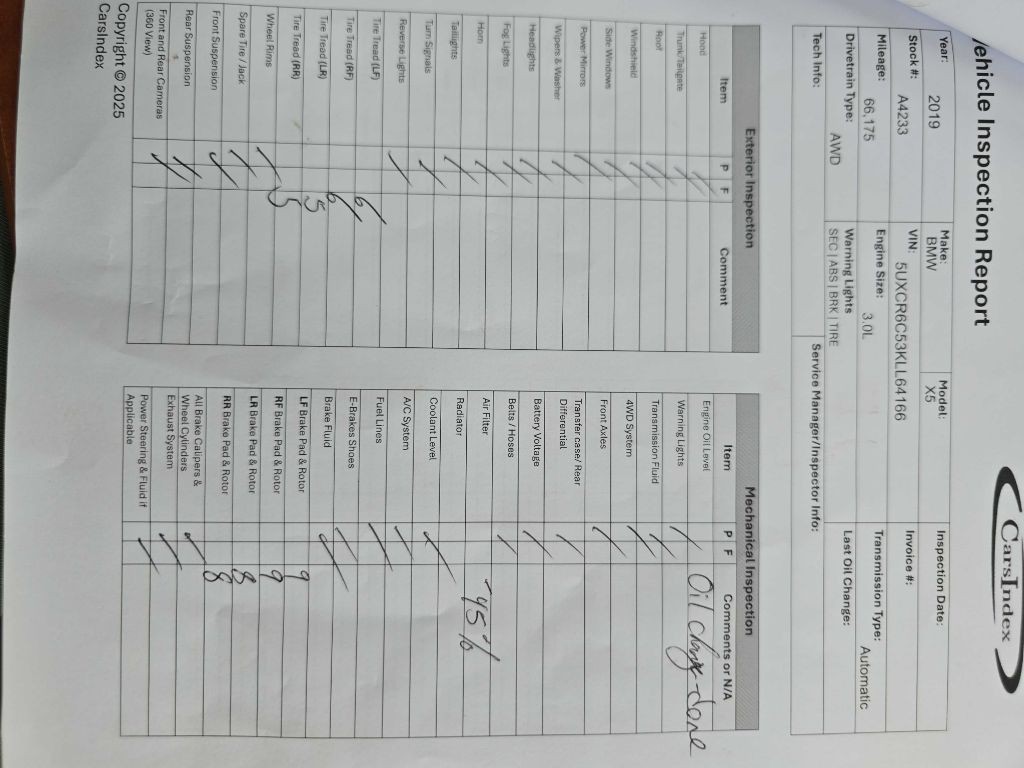 Vehicle Inspection Report
CarsIndex
Year: 2019 Make: BMW Model: X5 Inspection Date:
Stock #: A4233 VIN: 5UXCR6C53KLL64166 Invoice #:
Mileage: 66,175 Engine Size: 3.0L Transmission Type: Automatic
Drivetrain Type: AWD Warning Lights SEC | ABS | BRK | TIRE Last Oil Change:
Tech Info: Service Manager/Inspector Info:
Exterior Inspection
Item P F Comment
Hood
Trunk/Tailgate
Roof
Windshield
Side Windows
Power Mirrors
Wipers & Washer
Headlights
Fog Lights
Horn
Taillights
Turn Signals
Reverse Lights
Tire Tread (LF) 6
Tire Tread (RF) 6
Tire Tread (LR) 5
Tire Tread (RR) 5
Wheel Rims
Spare Tire / Jack
Front Suspension
Rear Suspension
Front and Rear Cameras
(360 View)
Mechanical Inspection
Item P F Comments or N/A
Engine Oil Level Oil change done
Warning Lights
Transmission Fluid
4WD System
Front Axles
Transfer case/ Rear
Differential
Battery Voltage
Belts / Hoses
Air Filter 45%
Radiator
Coolant Level
A/C System
Fuel Lines
E-Brakes Shoes
Brake Fluid
LF Brake Pad & Rotor 9
RF Brake Pad & Rotor 9
LR Brake Pad & Rotor 8
RR Brake Pad & Rotor 8
All Brake Calipers &
Wheel Cylinders
Exhaust System
Power Steering & Fluid if
Applicable
Copyright © 2025
CarsIndex